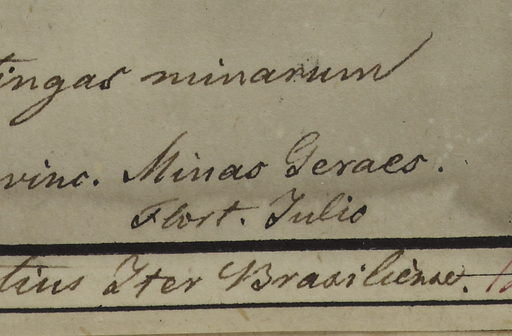 tingas minarum
vinc. Minas Geraes.
Flort. Julio
tius Iter Brasiliense.